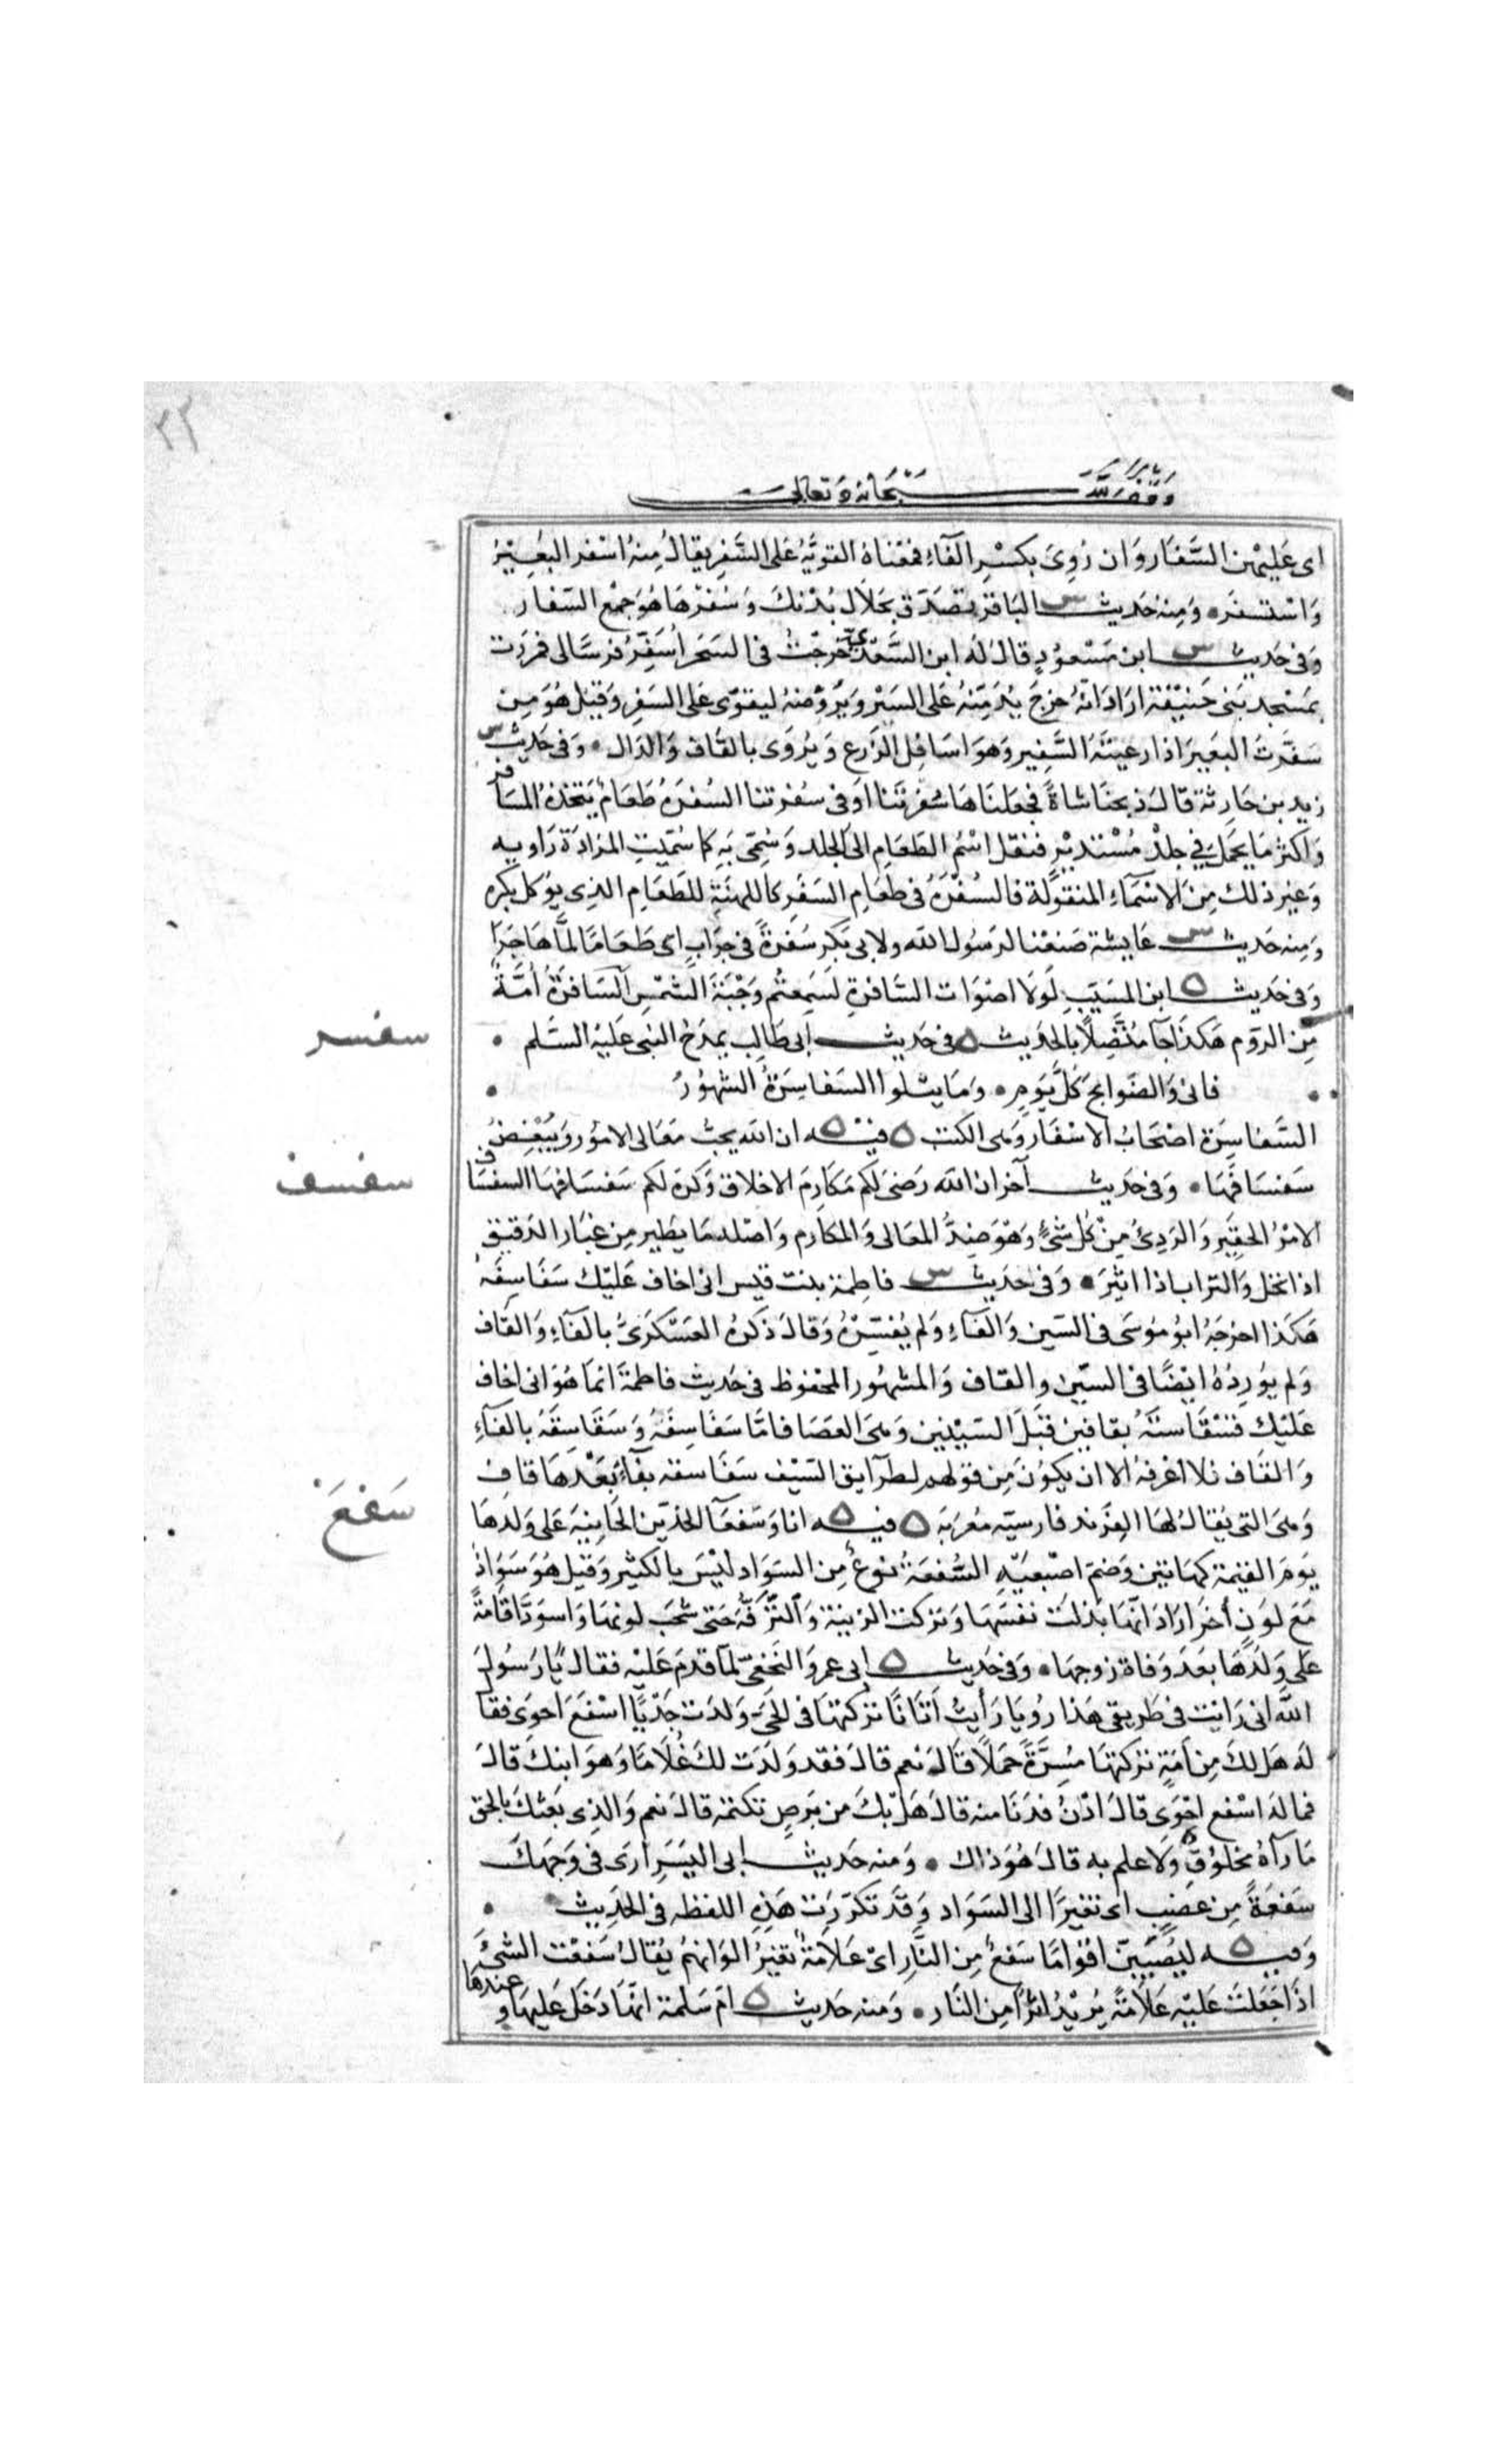 ٣٢
وقف لله سبحانه وتعالى
اى عليهن السَّفار وان رُوِىَ بكسْرِ الفآءِ فمعْناهُ القويَّة عَلى السَّفرِ يقالُ مِنهُ اسْفر البَعِيْرُ
وَاسْتسفرَ • وَمِنه حَديث س الباقر تصَدَّق بجَلال بُدْنكَ وَسُفرْهَا هُوَ جمْع السّفار
وَفى حَديث س ابن مَسْعوُدٍ قالَ له ابن السَّعْدىّ خرجْتُ فى السَحَر أُسَفِّرُ فرسًا لى فمررْت
بمَسْجد بَنى حَنيْفَة ارَادَ انّهُ خرجَ يُدَمِّنهُ عَلى السَيْر وَيرُوّضهُ ليقوّى عَلى السَفرِ وَقيْل هُوَ مِن
سَفَّرتُ البَعيرَ اذا رعيتهُ السَّفِير وَهوَ اسَافِل الزَرع وَيُروَى بالقَاف وَالدال • وَفى حَديث س
زيد بن حَارثة قالَ ذبحنَا شاةً فجعَلناهَا سُفْرتَنا اوَ فى سفرتنا السُفرَة طَعَامٌ يَتخذهُ المسَافر
وَاكثر مَا يحْمَل فى جِلدْ مُسْتديْرٍ فنقل اسْمُ الطعَامِ الى الجلد وَسُمّى بهِ كمَا سُمّيَتِ المزَادَة رَاويه
وَغيْر ذلك مِنَ الاسْمَآءِ المنقوُلة فالسُفْرَةُ فى طعَامِ السَفَر كاللهنَةِ للطَعَامِ الذِى يوُكل بكره
وَمِنه حَديث س عَايشة صَنعْنا لرسُول الله ولابى بَكر سُفرةً فى جرَابٍ اى طَعَامًا لمَّا هَاجَرَا
وَفى حَديث ه ابن المسَيّبِ لَولَا اصْوَات السَّافرةِ لسَمِعتُم وَجْبَةَ الشمْسِ السَافرَةُ أُمَّةٌ
سفسر
مِن الروُم هَكذَا جآ مُتَّصِلًا بالحَديث ه فى حَديث ابى طَالِب يمدَح النبى عَليهْ السَّلم •
فانى وَالضوابح كلَّ يَومٍ • وَمَا يتلوا السَفاسِرَةُ الشهوُرُ
السَّفاسِرَة اصْحَابُ الاسْفار وَهى الكتب ه فيْه ه ان الله يحبّ مَعَالى الامُور وَيُبْغِضُ
سفسف
سَفسَافهَا • وَفى حَديث آخر ان الله رَضىَ لكم مَكارِمَ الاخلاق وَكرهَ لكم سَفسَافهَا السفسَاف
الامْرُ الحقِير وَالرَدىُ مِنْ كُل شئٍ وَهوَ ضِدُّ المعَالى وَالمكارِم وَاصْله مَا يطير مِن غبَار الدَقيق
اذا نخل وَالتراب اذا اثيْرَ • وَفى حَديث س فاطِمة بنت قيس انى اخاف عَليْك سَفَاسِفَهُ
هَكذا اخرجَهُ ابوُ موُسَى فى السّين وَالفآءِ وَلم يُفسّرْهُ وَقالَ ذكرهُ العَسْكَرىُّ بالفآءِ وَالقَاف
وَلم يوُرِدْهُ ايْضًا فى السيّن والقاف وَالمشهوُر المحْفوُظ فى حَديث فاطمَةَ انمَا هُوَ انى اخاف
عَليْك قسْقَاستَهُ بقافين قبْلَ السيْنين وَهىَ العَصَا فامَّا سَفَاسِفَهُ وَسَقَاسِقَهُ بالفآءِ
وَالقَاف فلا اعْرفهُ الا ان يكوُن مِن قوْلهم لطرآيق السَيْف سَفَاسقه بفآءٍ بَعْدهَا قاف
سَفعَ
وَهىَ التى يُقالُ لهَا الفِرند فارسيّه مُعَرّبَه ه فيه ه انا وَسَفعَآ الخدّين الحَانِيَة عَلى وَلدهَا
يَومَ القيٰمة كهَاتين وَضمّ اصْبعَيْهِ السُّفعَةُ نوعٌ مِن السَوَاد ليْسَ بالكثير وَقيْل هُوَ سَوَادٌ
مَعَ لوَنٍ أخرَ ارَادَ انّهَا بَذلَتْ نفسَهَا وَتركت الزيْنة وَالتّرَفّهَ حَتى شحَبَ لونهَا وَاسوَدَّ اقَامَةً
عَلى وَلدِهَا بَعدَ وَفاة زوجهَا • وَفى حَديث ه ابى عمرو النَخعِىّ لمّا قدِمَ عَليْه فقال يَارسُولَ
الله انى رَايت فى طَرِيقى هَذا رُويَا رَأيتُ أتانًا تركتهَا فى الحَىّ وَلدَت جَدْيًا اسْفعَ احوَى فقا
له هَل لكَ مِن أمَةٍ تركتهَا مُسِرَّةً حَمَلًا قالَ نعم قالَ فقد وَلدَت لكَ غُلَامًا وَهوَ ابنكَ قالَ
فما لهُ اسْفع احْوَى قالَ ادْنُ فدَنا منه قالَ هَل بكَ من بَرصٍ تكتمه قالَ نعم وَالذِى بَعثكَ بالحق
مَا رآهُ مخلوُقٌ وَلا علم به قالَ هُوَ ذاك • وَمنه حَديث ابى اليَسَرِ ارَى فى وَجهِكَ
سَفعَةً مِن غضبٍ اى تغيرًا الى السَوَاد وَقد تكرّرَت هَذِهِ اللفظه فى الحَدِيث •
وَفيه ه ليُصيْبَنّ اقوامًا سَفعٌ مِن النَّارِ اىْ عَلَامَةٌ تغيّرُ الوَانهمُ يُقالُ سَفعْت الشئَ
اذَا جَعَلتَ عَليْه عَلَامَةً يُريْدُ اثرًا مِن النَار • وَمنه حَديث ه امّ سَلمة انّهَا دَخلَ عَليهَا وعندهَا